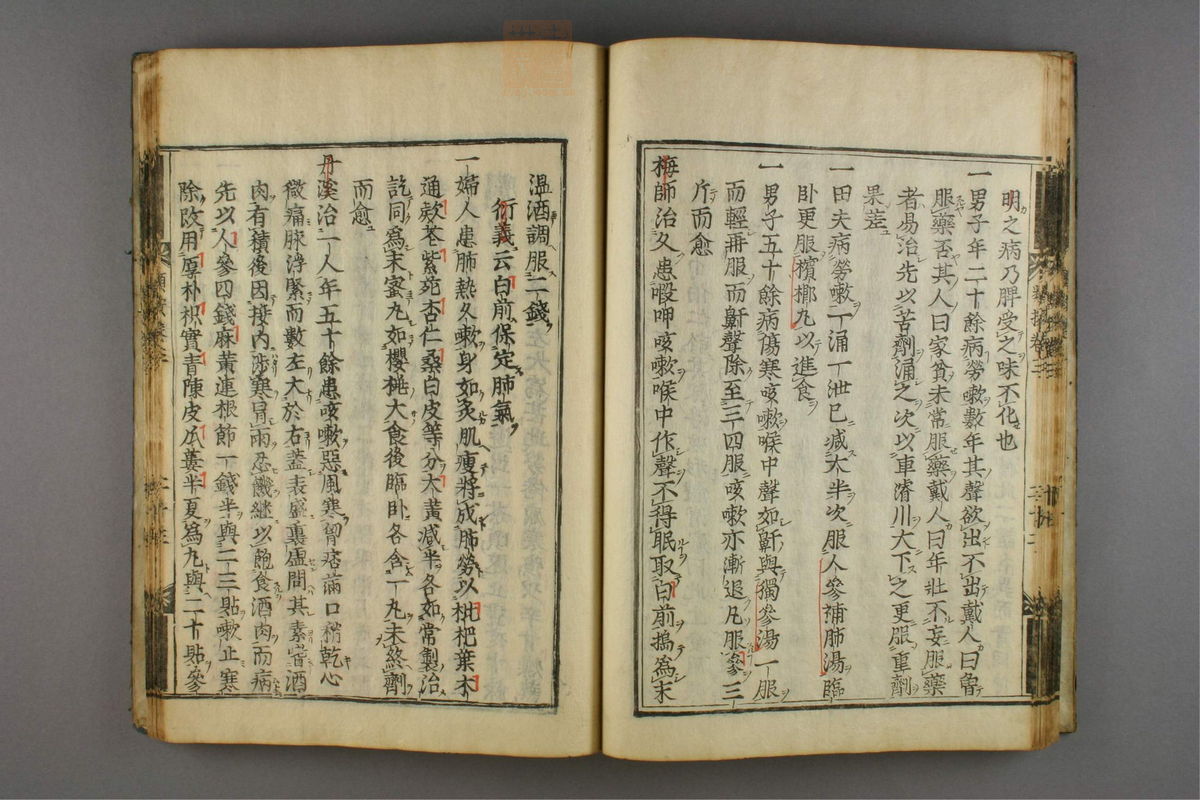 明之病乃脾受之味不化也
一男子年二十餘病勞嗽數年其聲欲出不出戴人曰曾
服藥否其人曰家貧未常服藥戴人曰年壯不妄服藥
者易治先以苦劑涌之次以車濬川大下之更服重劑
果差
一田夫病勞嗽一涌一泄已減太半次服人參補肺湯臨
卧更服檳榔丸以進食
一男子五十餘病傷寒咳嗽喉中聲如鼾與獨參湯一服
而輕再服而鼾聲除至三四服咳嗽亦漸退凡服參三
片而愈
梅師治久患暇呷咳嗽喉中作聲不得眠取白前搗為末
溫酒調服二錢
衍義云白前保定肺氣
一婦人患肺熱久嗽身如炙肌瘦將成肺勞以枇杷葉木
通款苳紫菀杏仁桑白皮等分大黃減半各如常製治
訖同為末蜜丸如櫻桃大食後臨卧各含一丸未終劑
而愈
丹溪治一人年五十餘患咳嗽惡風寒胷痞滿口稍乾心
微痛脉浮緊而數左大於右蓋表盛裏虛問其素嗜酒
肉有積後因接內涉寒冒雨忍饑繼以飽食酒肉而病
先以人參四錢麻黃連根節一錢半與二三貼嗽止寒
除改用厚朴枳實青陳皮瓜蔞半夏為丸與二十貼參